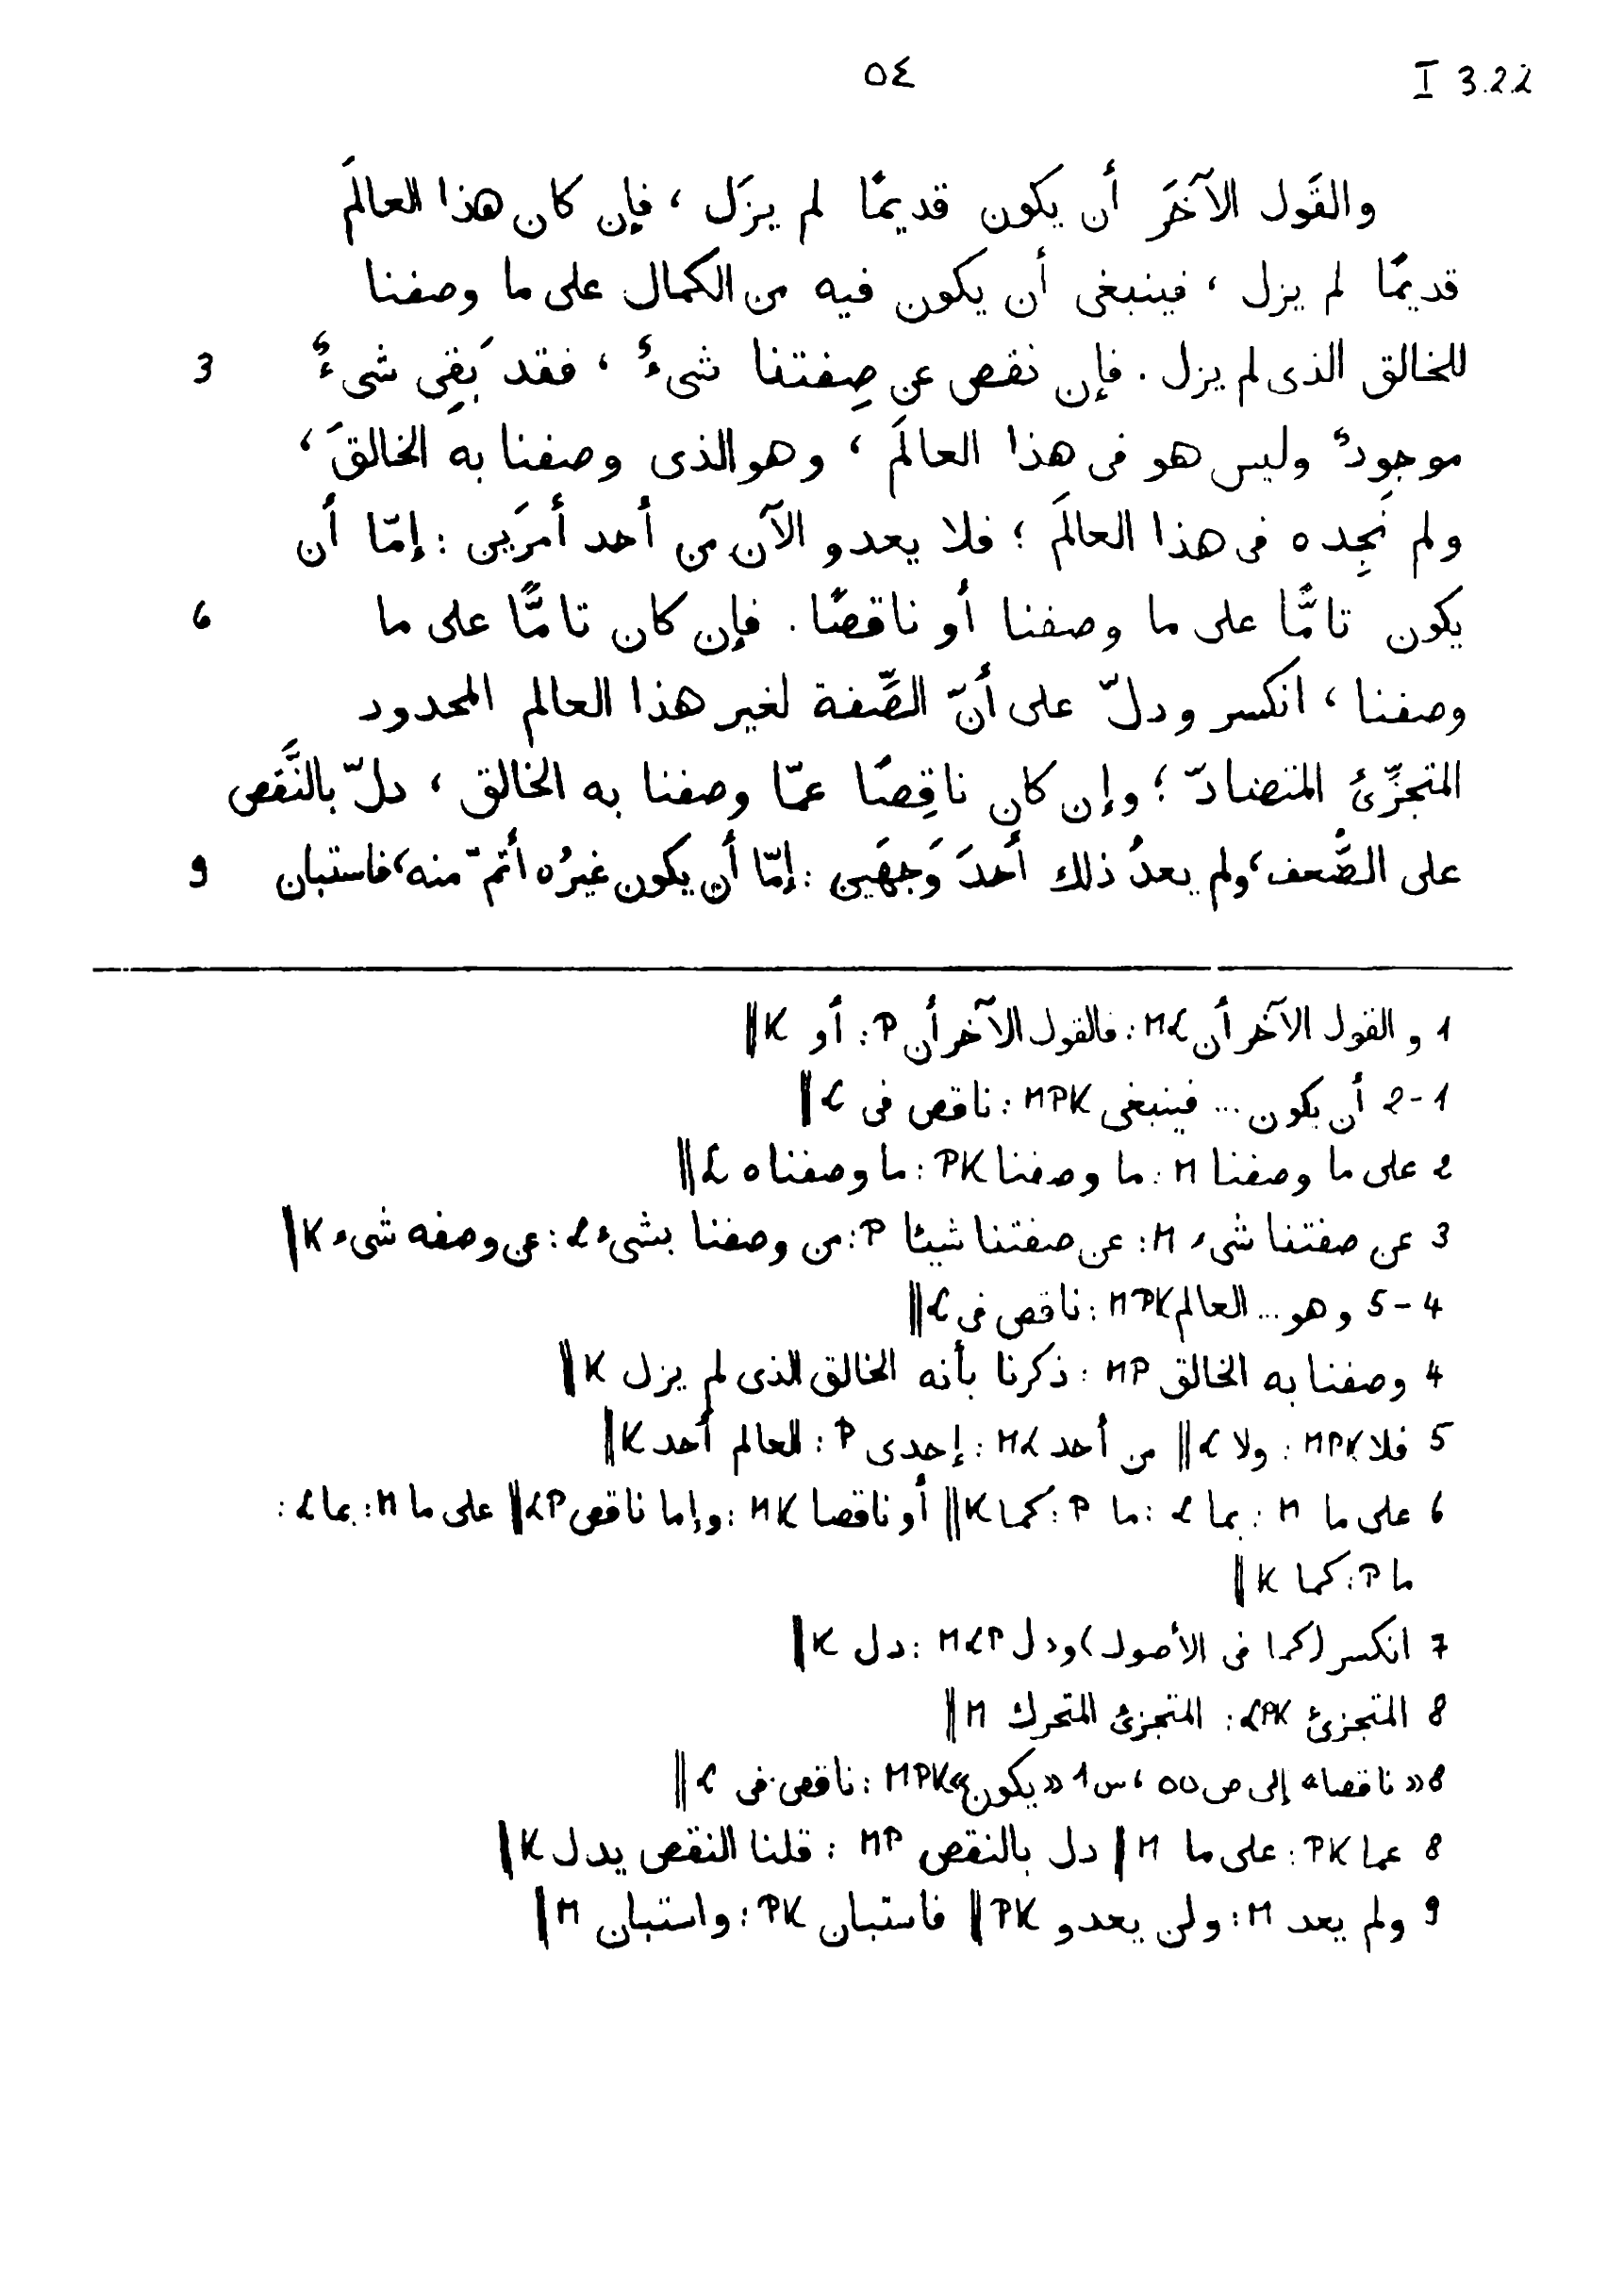 ٥٤
I 3.2.2
والقَول الآخَر أن يكون قديمًا لم يزَل ، فإن كان هذا العالَم
قديمًا لم يزل ، فينبغى أن يكون فيه من الكمال على ما وصفنا
للخالق الذى لم يزل . فإن نقص عن صِفتنا شىءٌ ، فقد بَقِى شىءٌ 3
موجودٌ وليس هو فى هذا العالَم ، وهو الذى وصفنا به الخالقَ ،
ولم نَجِده فى هذا العالَم ؛ فلا يعدو الآن من أحد أمرَين : إمّا أن
يكون تامًّا على ما وصفنا أو ناقصًا . فإن كان تامًّا على ما 6
وصفنا ، انكسر ودلّ على أنّ الصِّفة لغير هذا العالم المحدود
المتجزِّئ المتضادّ ؛ وإن كان ناقِصًا عمّا وصفنا به الخالق ، دلّ بالنَّقص
على الضَّعف ، ولم يعدُ ذلك أحدَ وَجهَين : إمّا أن يكون غيرُه أتمّ منه ، فاستبان 9
1 والقول الآخر أن ML : فالقول الآخر أن P : أو K ‖
1-2 أن يكون ... فينبغى MPK : ناقص فى L ‖
2 على ما وصفنا M : ما وصفنا PK : ما وصفناه L ‖
3 عن صفتنا شىء M : عن صفتنا شيئا P : من وصفنا بشىء L : عن وصفه شىء K ‖
4-5 وهو ... العالم MPK : ناقص فى L ‖
4 وصفنا به الخالق MP : ذكرنا بأنه الخالق الذى لم يزل K ‖
5 فلا MPK : ولا L ‖ من أحد ML : إحدى P : العالم أحد K ‖
6 على ما M : بما L : ما P : كما K ‖ أو ناقصا MK : وإما ناقص LP ‖ على ما M : بما L :
ما P : كما K ‖
7 انكسر (كما فى الأصول) ودل MLP : دل K ‖
8 المتجزئ LPK : المتجزئ المتحرك M ‖
8 «ناقصا» إلى ص ٥٥ ، س 1 «يكون» MPK : ناقص فى L ‖
8 عما PK : على ما M ‖ دل بالنقص MP : قلنا النقص يدل K ‖
9 ولم يعد M : ولن يعدو PK ‖ فاستبان PK : واستبان M ‖